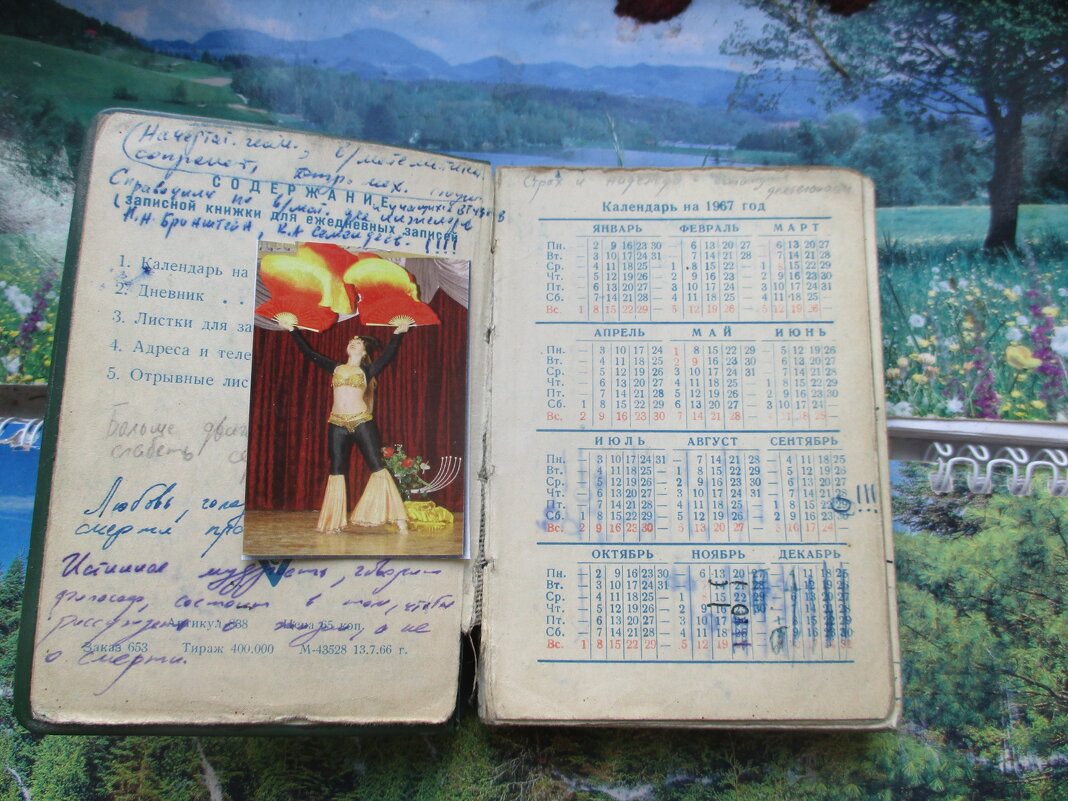 (Начертат. геом., в/математика,
сопромат,
Справочник по
СОДЕРЖАНИЕ
записной книжки для ежедневных записей
И.Н. Бронштейн, К.А Семендяев. !!!!
1. Календарь на
2. Дневник . .
3. Листки для за
4. Адреса и теле
5. Отрывные лис
Больше
слабеть
Любовь, голод
смерти
Истинная мудрость, говорит
философ, состоит в том, чтобы
рассуждать о жизни, а не
Артикул 638 Цена 65 коп.
о смерти.
Заказ 653 Тираж 400.000 М-43528 13.7.66 г.
Страх и надежда
Календарь на 1967 год
ЯНВАРЬ ФЕВРАЛЬ МАРТ
Пн. — 2 9 16 23 30 — 6 13 20 27 — 6 13 20 27
Вт. — 3 10 17 24 31 — 7 14 21 28 — 7 14 21 28
Ср. — 4 11 18 25 — 1 8 15 22 — 1 8 15 22 29
Чт. — 5 12 19 26 — 2 9 16 23 — 2 9 16 23 30
Пт. — 6 13 20 27 — 3 10 17 24 — 3 10 17 24 31
Сб. — 7 14 21 28 — 4 11 18 25 — 4 11 18 25 —
Вс. 1 8 15 22 29 — 5 12 19 26 — 5 12 19 26 —
АПРЕЛЬ МАЙ ИЮНЬ
Пн. — 3 10 17 24 1 8 15 22 29 — 5 12 19 26
Вт. — 4 11 18 25 2 9 16 23 30 — 6 13 20 27
Ср. — 5 12 19 26 3 10 17 24 31 — 7 14 21 28
Чт. — 6 13 20 27 4 11 18 25 — 1 8 15 22 29
Пт. — 7 14 21 28 5 12 19 26 — 2 9 16 23 30
Сб. 1 8 15 22 29 6 13 20 27 — 3 10 17 24 —
Вс. 2 9 16 23 30 7 14 21 28 — 4 11 18 25 —
ИЮЛЬ АВГУСТ СЕНТЯБРЬ
Пн. — 3 10 17 24 31 — 7 14 21 28 — 4 11 18 25
Вт. — 4 11 18 25 — 1 8 15 22 29 — 5 12 19 26
Ср. — 5 12 19 26 — 2 9 16 23 30 — 6 13 20 27
Чт. — 6 13 20 27 — 3 10 17 24 31 — 7 14 21 28
Пт. — 7 14 21 28 — 4 11 18 25 — 1 8 15 22 29
Сб. 1 8 15 22 29 — 5 12 19 26 — 2 9 16 23 30
Вс. 2 9 16 23 30 — 6 13 20 27 — 3 10 17 24 —
ОКТЯБРЬ НОЯБРЬ ДЕКАБРЬ
Пн. — 2 9 16 23 30 — 6 13 20 27
Вт. — 3 10 17 24 31 — 7
Ср. — 4 11 18 25 — 1 8 15 22
Чт. — 5 12 19 26 — 2 9
Пт. — 6 13 20 27 — 3 10
Сб. — 7 14 21 28 — 4 11 18
Вс. 1 8 15 22 29 — 5 12 19